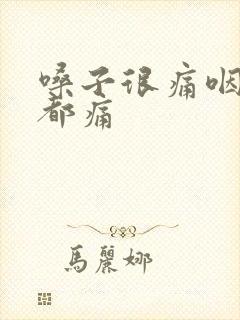 嗓子很痛咽
都痛
馬麗娜